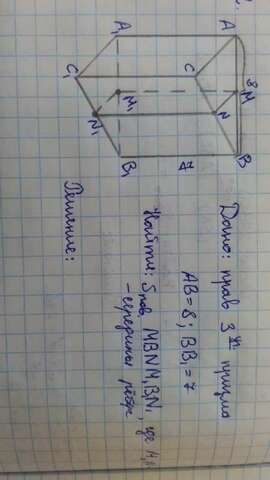 A₁
A
8
C₁
C
M₁
M
N₁
N
B₁
B
7
Дано: прав 3ᵃˣ призма
AB = 8; BB₁ = 7
Найти: Sпов MBNM₁B₁N₁, где M,
- середины рёбер
Решение: